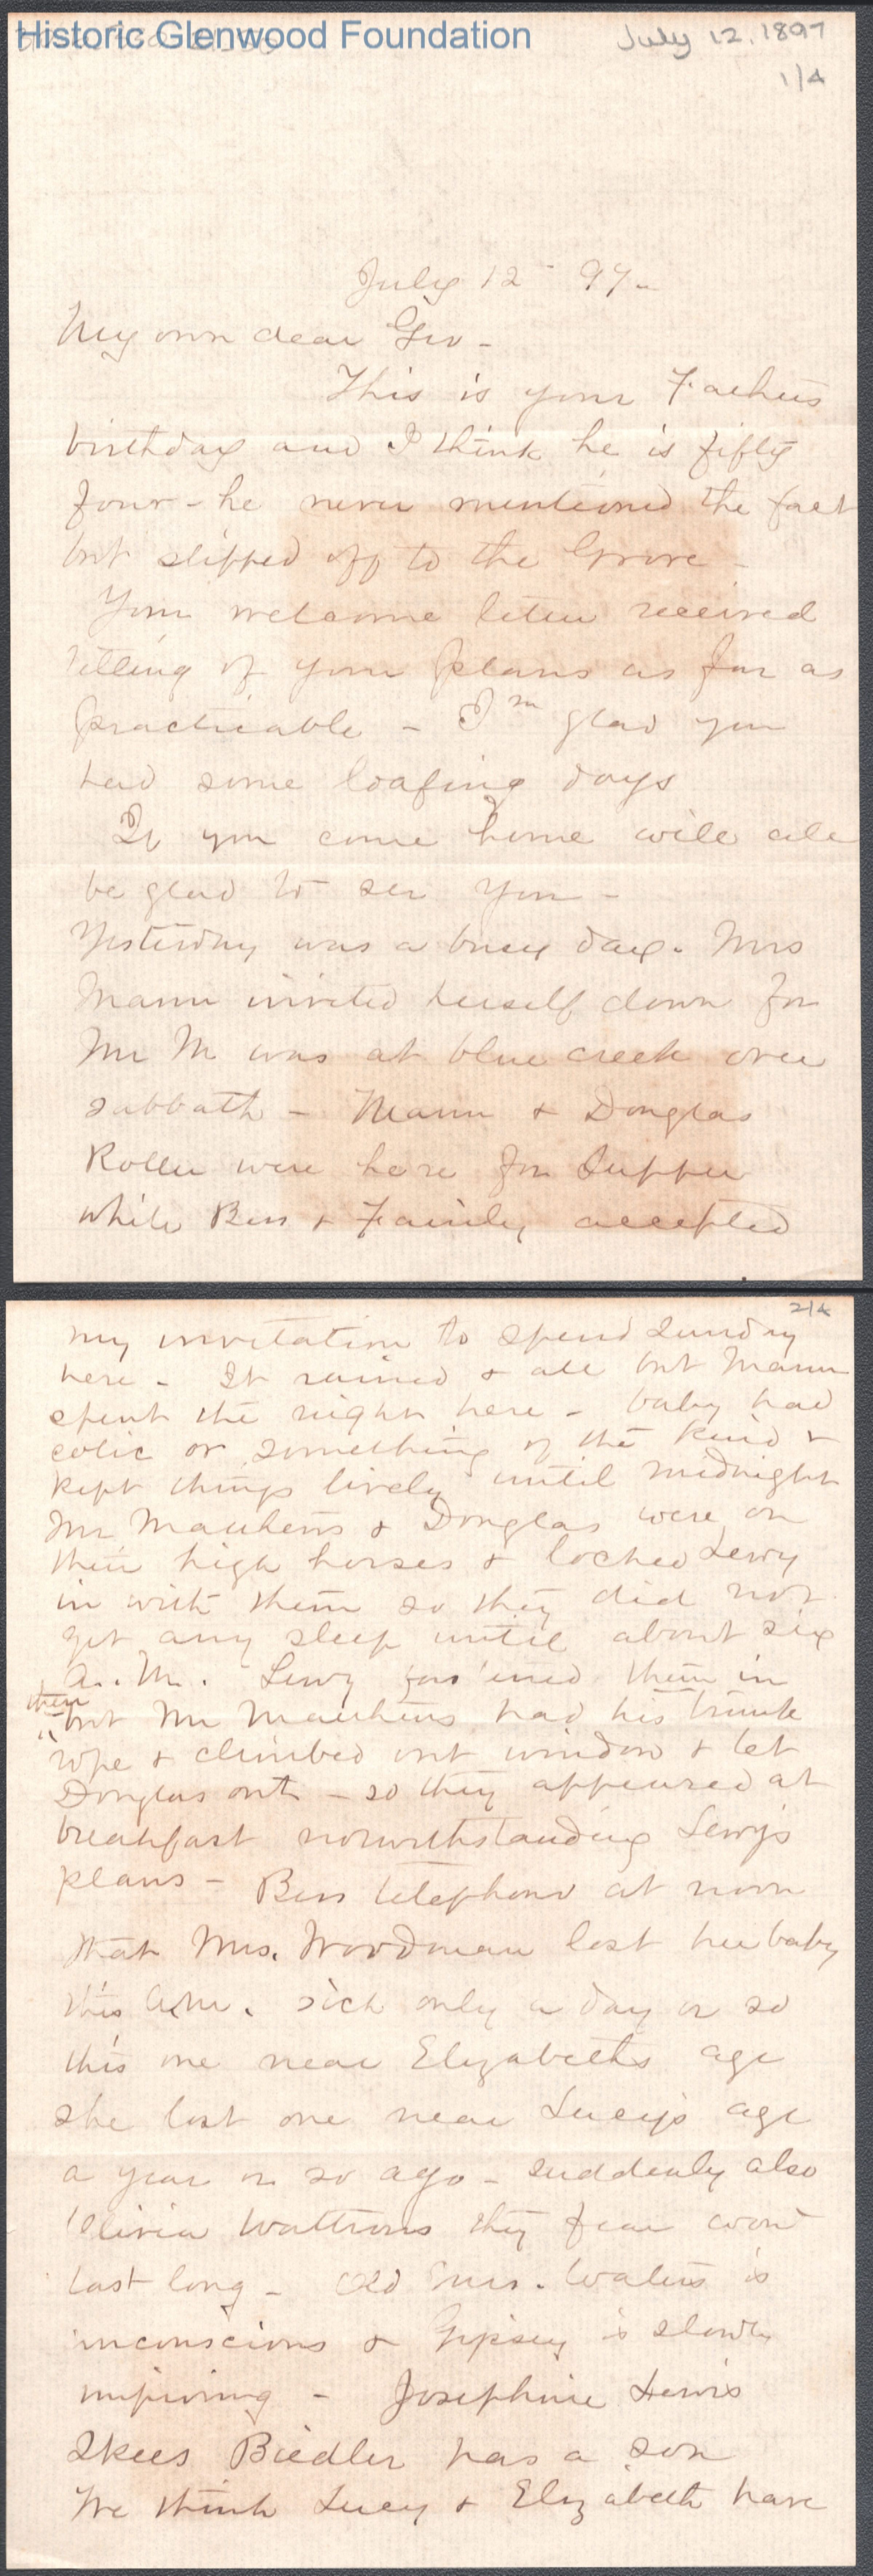 Historic Glenwood Foundation
July 12, 1897
1/4
July 12 - 97 -
My own dear Geo -
This is your Fathers
birthday and I think he is fifty
four - he never mentioned the fact
but slipped off to the Grove -
Your welcome letter received
telling of your plans as far as
practicable - I'm glad you
had some loafing days
If you come home will all
be glad to see you -
Yesterday was a busy day. Mrs
Mann invited herself down for
Mr M was at blue creek over
sabbath - Mann & Douglas
Roller were here for supper
while Bess & Family accepted
2/4
my invitation to spend Sunday
here - It rained & all but Mann
spent the night here - baby had
colic or something of the kind &
kept things lively until midnight
Mr Mauthens & Douglas were on
their high horses & locked Lewy
in with them so they did not
get any sleep until about six
A. M. Lewy fas'ened them in
then
but Mr Mauthens had his trunk
rope & climbed out window & let
Douglas out - so they appeared at
breakfast notwithstanding Lewy's
plans - Bess telephond at noon
that Mrs. Woodman lost her baby
this A.M. sick only a day or so
this one near Elizabeths age
she lost one near Lucy's age
a year or so ago - suddenly also
Olivia Wattrons they fear wont
last long - Old Mrs. Walters is
unconscious & Gipsey is slowly
improving - Josephine Lewis
Skees Biedler has a son
We think Lucy & Elizabeth have